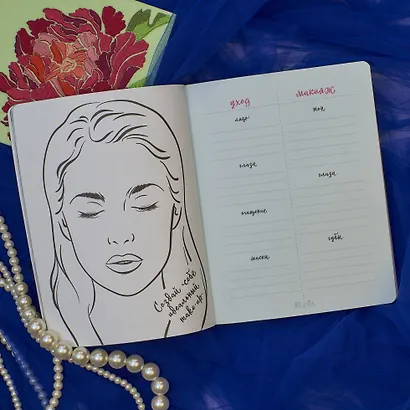 Создай себе
идеальный
make-up
уход
макияж
лицо
тон
глаза
глаза
очищение
губы
маски